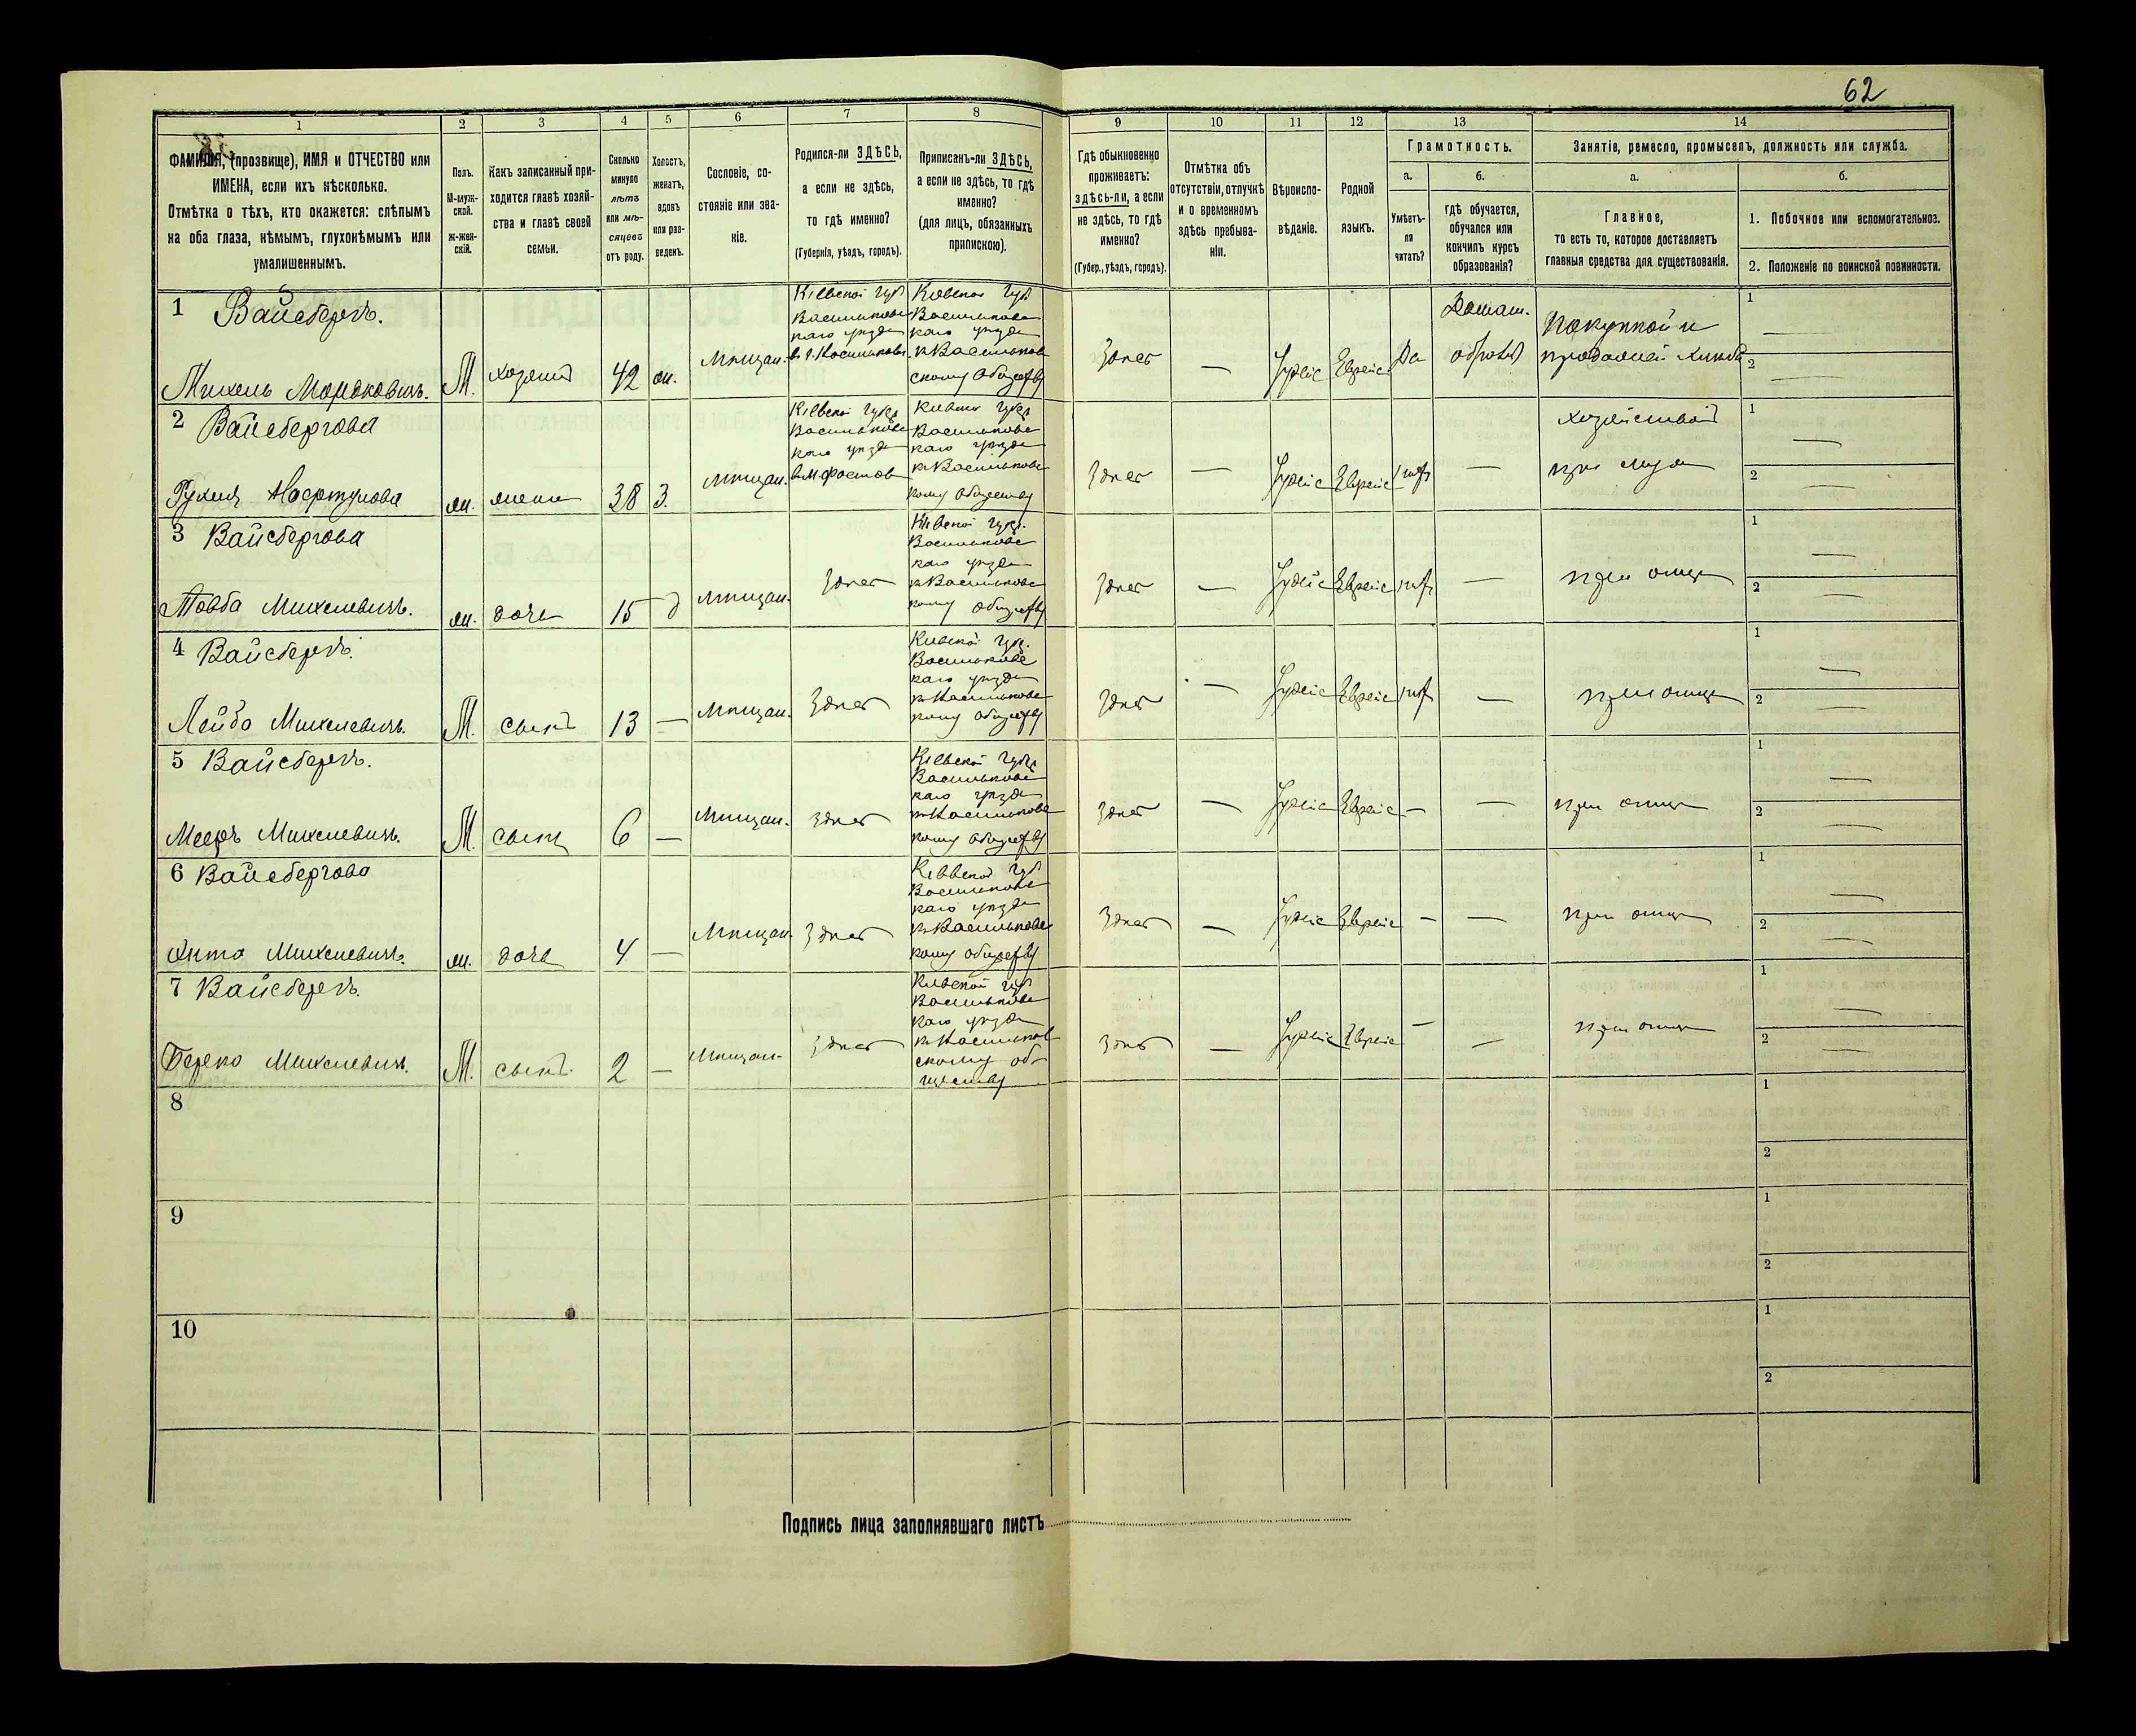 62
1 2 3 4 5 6 7 8 9 10 11 12 13 14
ФАМИЛІЯ, (прозвище), ИМЯ и ОТЧЕСТВО или
ИМЕНА, если ихъ нѣсколько.
Отмѣтка о тѣхъ, кто окажется: слѣпымъ
на оба глаза, нѣмымъ, глухонѣмымъ или
умалишеннымъ.
Полъ.
М-муж-
ской.
ж-жен-
скій.
Какъ записанный при-
ходится главѣ хозяй-
ства и главѣ своей
семьи.
Сколько
минуло
лѣтъ
или мѣ-
сяцевъ
отъ роду.
Холостъ,
женатъ,
вдовъ
или раз-
веденъ.
Сословіе, со-
стояніе или зва-
ніе.
Родился-ли ЗДѢСЬ,
а если не здѣсь,
то гдѣ именно?
(Губернія, уѣздъ, городъ).
Приписанъ-ли ЗДѢСЬ,
а если не здѣсь, то гдѣ
именно?
(для лицъ, обязанныхъ
припискою).
Гдѣ обыкновенно
проживаетъ:
здѣсь-ли, а если
не здѣсь, то гдѣ
именно?
(Губер., уѣздъ, городъ).
Отмѣтка объ
отсутствіи, отлучкѣ
и о временномъ
здѣсь пребыва-
ніи.
Вѣроиспо-
вѣданіе.
Родной
языкъ.
Грамотность.
а.
Умѣетъ-
ли
читать?
б.
гдѣ обучается,
обучался или
кончилъ курсъ
образованія?
Занятіе, ремесло, промыселъ, должность или служба.
а.
Главное,
то есть то, которое доставляетъ
главныя средства для существованія.
б.
1. Побочное или вспомогательное.
2. Положеніе по воинской повинности.
1 Вайсбергъ.
Михель Мордковичъ. М. хозяинъ 42 ж. Мѣщан.
Кіевской губ
Васильковс
каго уѣзда
в г. Васильковѣ
Кіевской губ
Васильковс
каго уѣзда
к Васильков
скому обществу
Здѣсь — Іудейс Еврейс Да
Домаш.
образов
Покупкой и
продажей хлѣба
1 —
2 —
2 Вайсбергова
ж. жена 38 З. Мѣщан.
Кіевской губ
Васильковс
каго уѣзда
в м. Фастов
Кіевской губ
Васильковс
каго уѣзда
к Васильковс
кому обществу
Здѣсь — Іудейс Еврейс нѣт —
хозяйством
при мужѣ
1 —
2 —
3 Вайсбергова
Товба Михелевичъ. ж. дочь 15 д Мѣщан. Здѣсь
Кіевской губ.
Васильковс
каго уѣзда
к Васильковс
кому обществу
Здѣсь — Іудейс Еврейс нѣт — при отцѣ
1 —
2 —
4 Вайсбергъ.
Лейба Михелевичъ. М. сынъ 13 — Мѣщан. Здѣсь
Кіевской губ.
Васильковс
каго уѣзда
к Васильковс
кому обществу
Здѣсь — Іудейс Еврейс нѣт — при отцѣ
1 —
2 —
5 Вайсбергъ.
Мееръ Михелевичъ. М. сынъ 6 — Мѣщан. Здѣсь
Кіевской губ
Васильковс
каго уѣзда
к Васильковс
кому обществу
Здѣсь — Іудейс Еврейс — — при отцѣ
1 —
2 —
6 Вайсбергова
Михелевичъ. ж. дочь 4 — Мѣщан. Здѣсь
Кіевской губ
Васильковс
каго уѣзда
к Васильковс
кому обществу
Здѣсь — Іудейс Еврейс — — при отцѣ
1 —
2 —
7 Вайсбергъ.
Берко Михелевич. М. сынъ. 2 — Мѣщан. Здѣсь
Кіевской губ
Васильковс
каго уѣзда
к Васильков
скому об-
ществу
Здѣсь — Іудейс Еврейс — — при отцѣ
1 —
2 —
8 1
2
9 1
2
10 1
2
Подпись лица заполнявшаго листъ